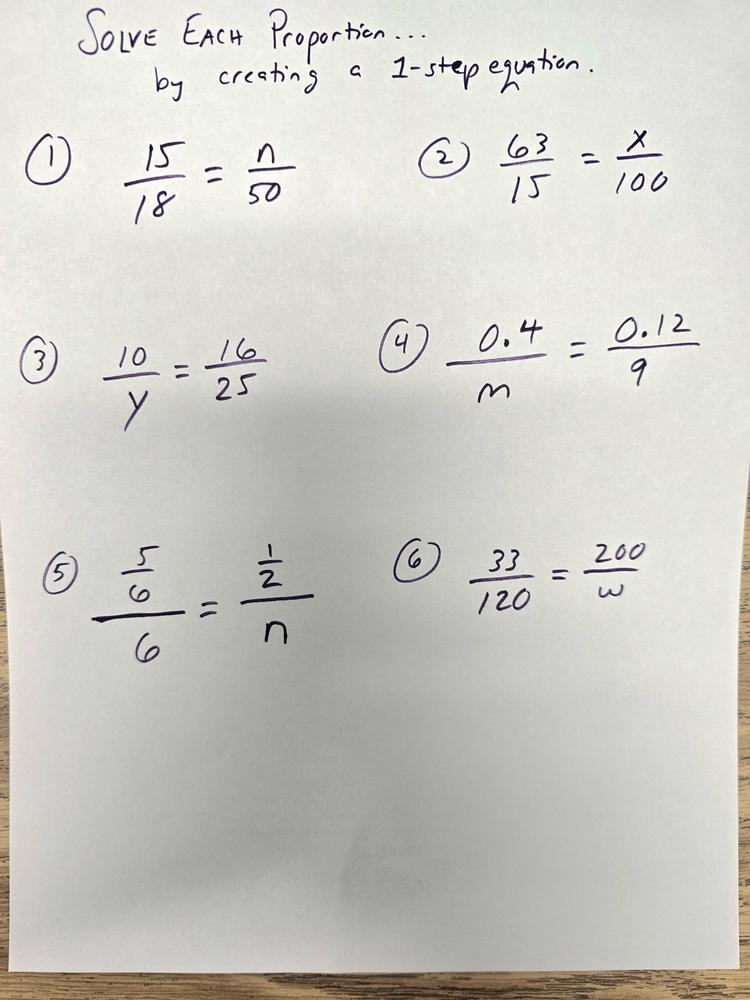 SOLVE EACH Proportion...
by creating a 1-step equation.
① 15/18 = n/50
② 63/15 = x/100
③ 10/y = 16/25
④ 0.4/m = 0.12/9
⑤ (5/6)/6 = (1/2)/n
⑥ 33/120 = 200/w